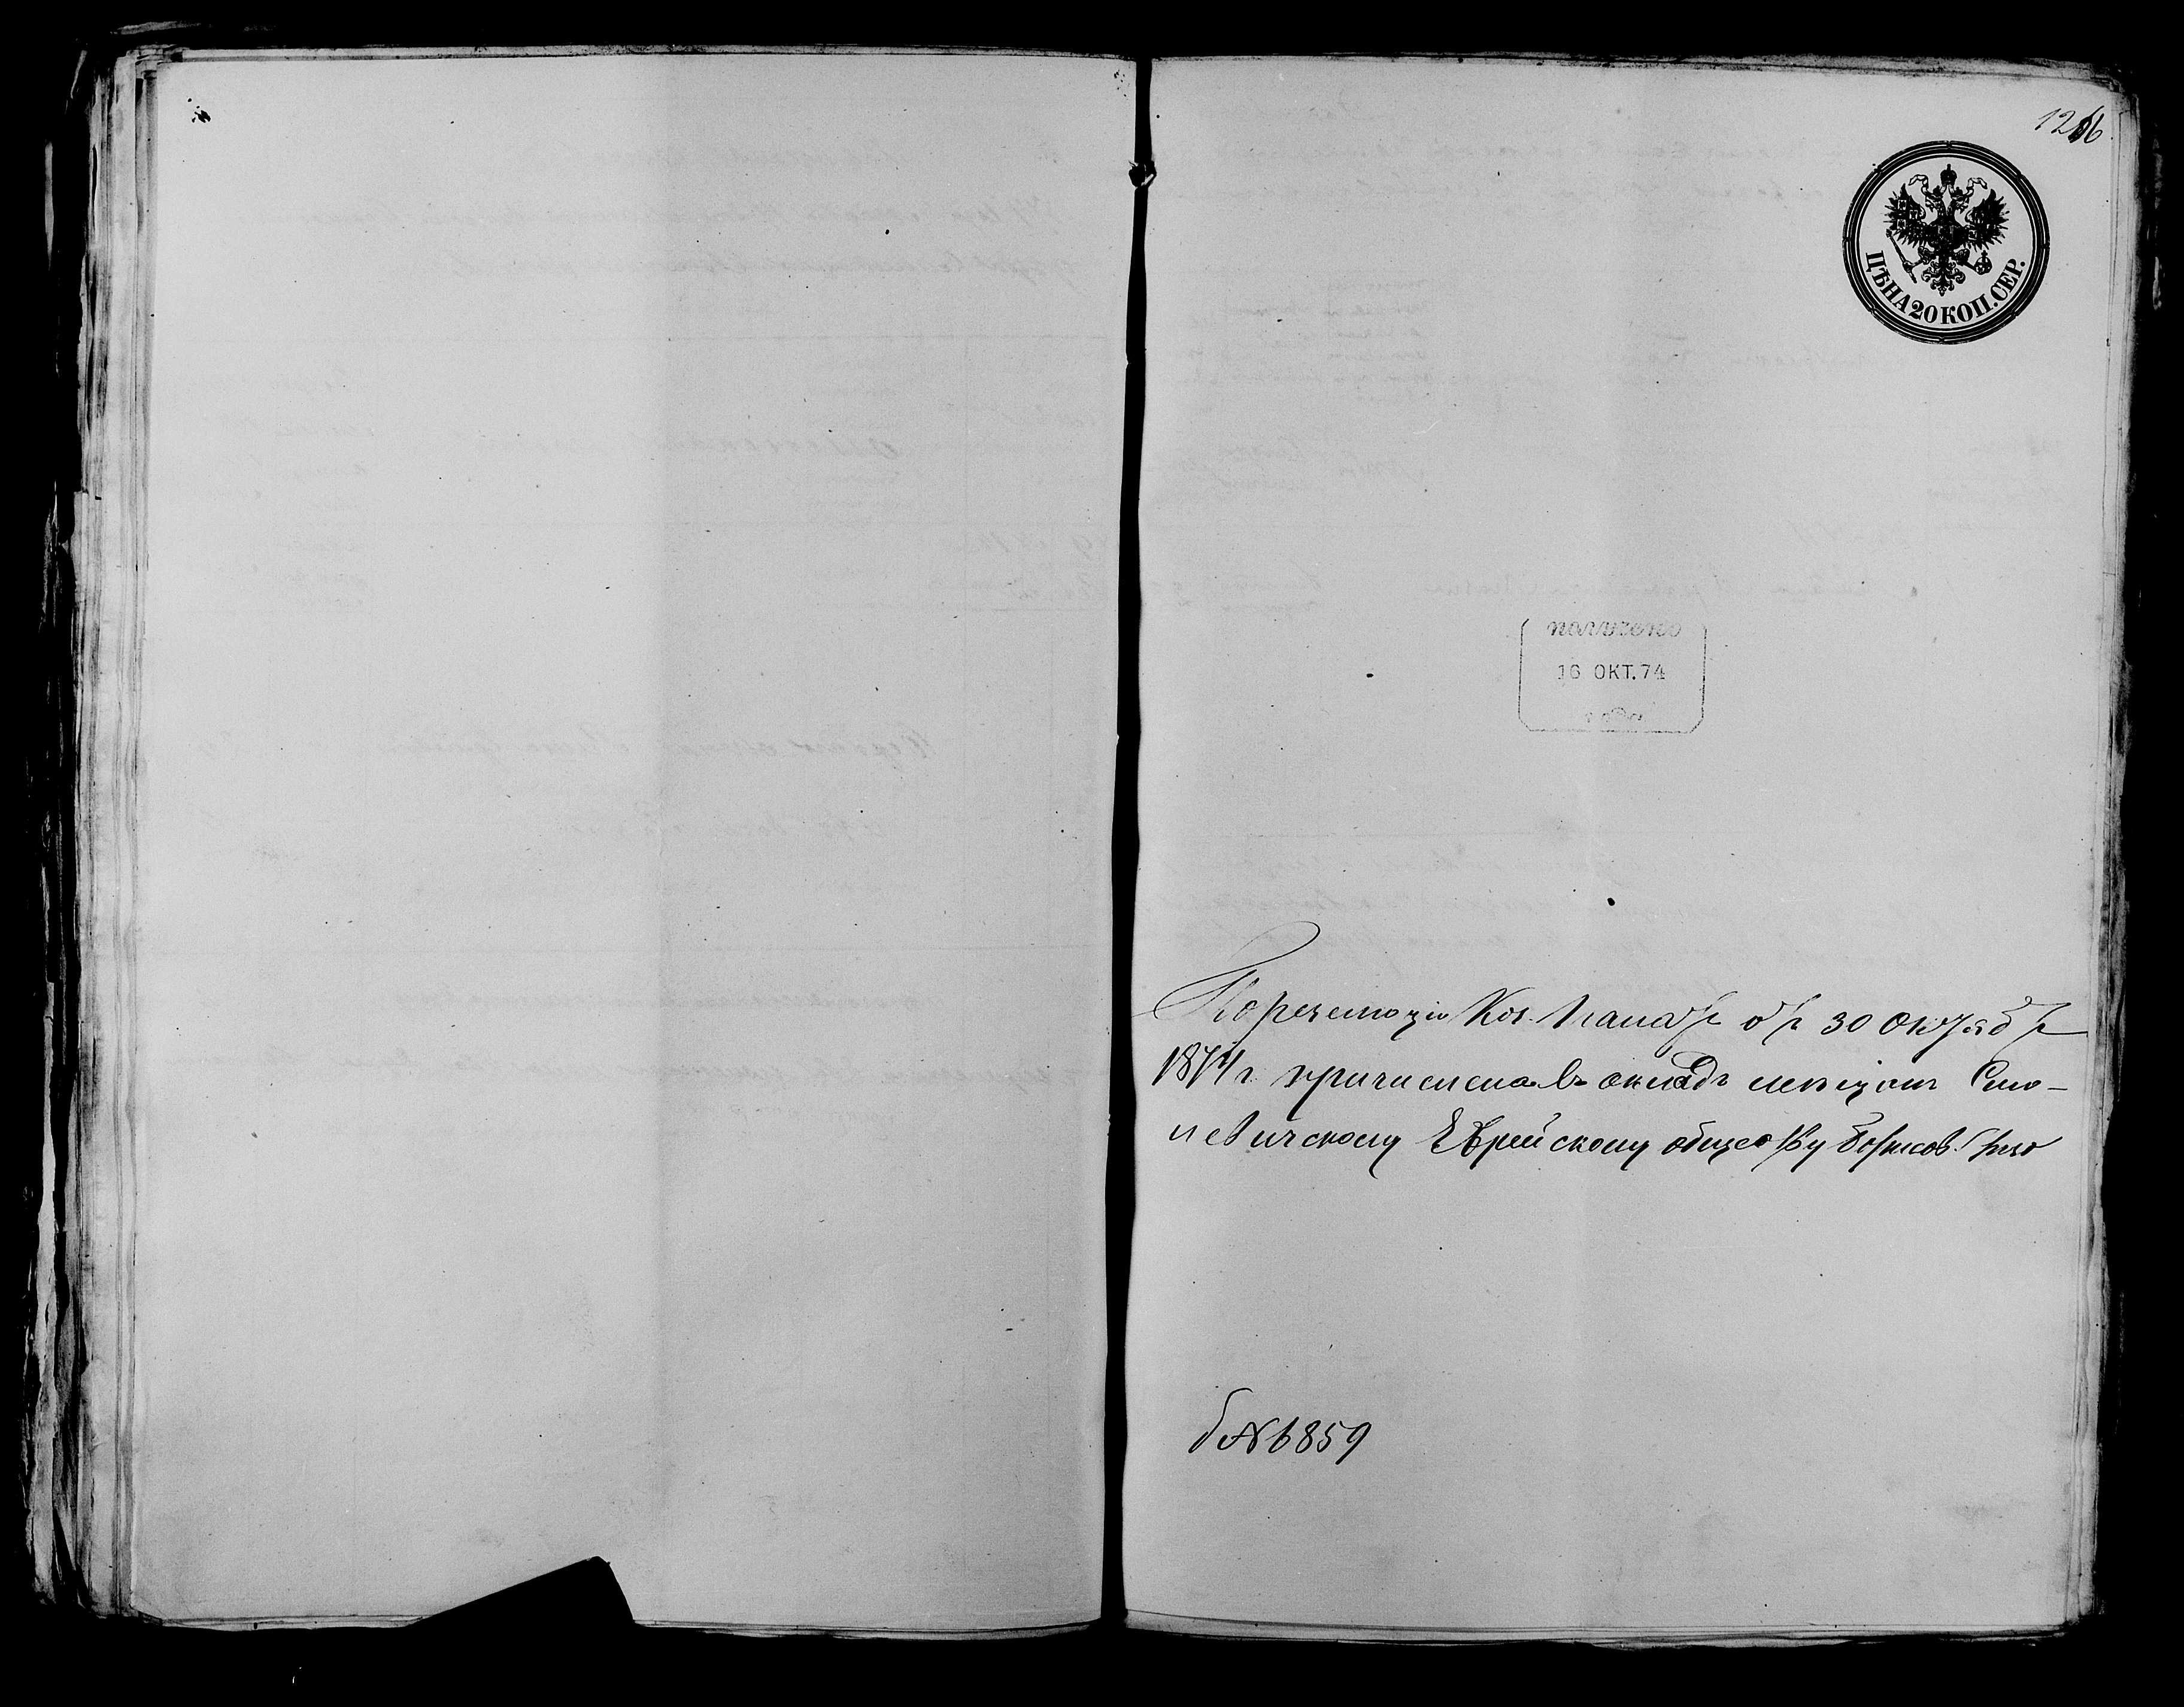 1216
ЦѢНА 20 КОП. СЕР.
получено
16 ОКТ. 74
По резолюціи Каз. Палаты отъ 30 Октяб
1874 г. причислена въ окладъ мѣщанъ Смо-
левичскому Еврейскому обществу Борисов.
№ 6859